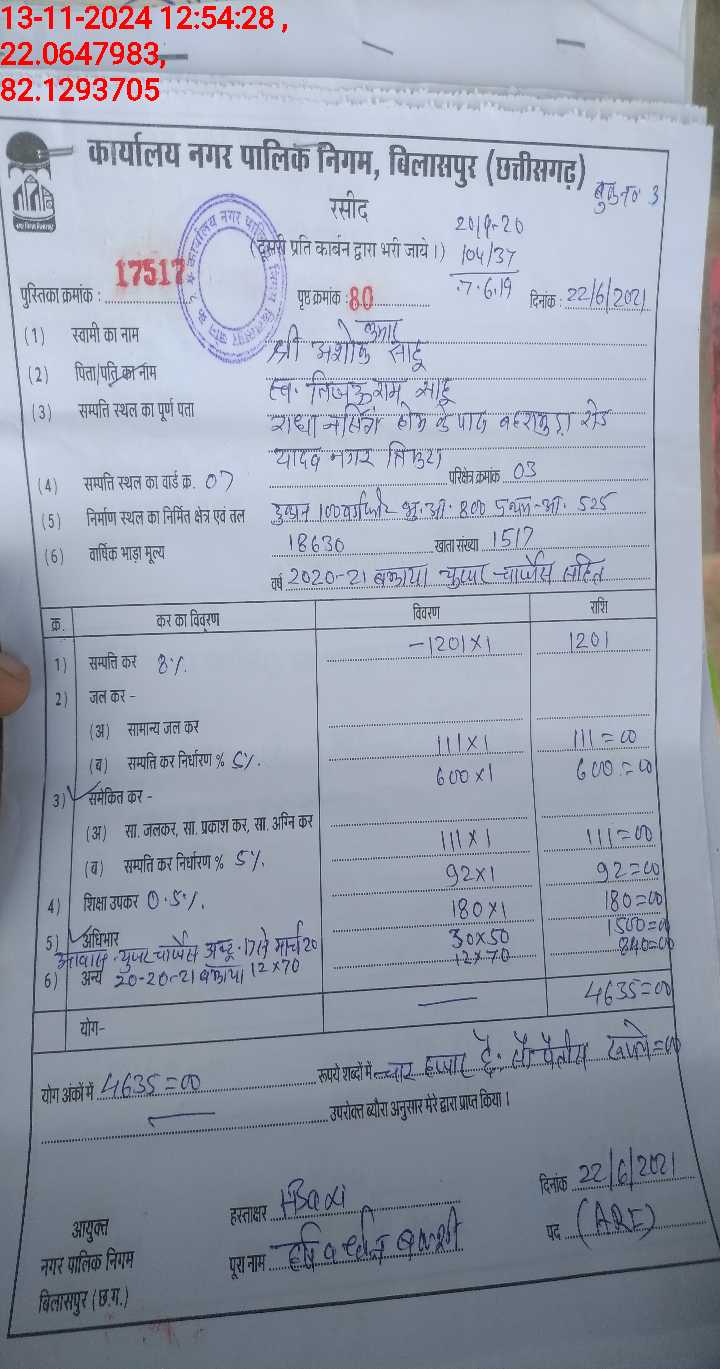 13-11-2024 12:54:28 ,
22.0647983,
82.1293705
कार्यालय नगर पालिक निगम, बिलासपुर (छत्तीसगढ़)
बुक नं 3
रसीद
2019-20
(दूसरी प्रति कार्बन द्वारा भरी जाये।) 104/37
7.6.19
पुस्तिका क्रमांक : 17517 पृष्ठ क्रमांक : 80 दिनांक : 22/6/2021
(1) स्वामी का नाम श्री अशोक कुमार साहू
(2) पिता/पति का नाम स्व. साहू
(3) सम्पत्ति स्थल का पूर्ण पता राधा होम के पास रोड
यादव नगर तिफरा
(4) सम्पत्ति स्थल का वार्ड क्र. 07 परिक्षेत्र क्रमांक 03
(5) निर्माण स्थल का निर्मित क्षेत्र एवं तल दुकान 100 भू.आ. 800 525
(6) वार्षिक भाड़ा मूल्य 18630 खाता संख्या 1517
वर्ष 2020-21 बकाया युजर चार्जेस सहित
क्र. कर का विवरण विवरण राशि
1) सम्पत्ति कर 8%. -1201×1 1201
2) जल कर -
(अ) सामान्य जल कर
(ब) सम्पत्ति कर निर्धारण % 5%. 111×1 111=00
3) समेकित कर - 600×1 600=00
(अ) सा. जलकर, सा. प्रकाश कर, सा. अग्नि कर
(ब) सम्पत्ति कर निर्धारण % 5%. 111×1 111=00
4) शिक्षा उपकर 0.5%. 92×1 92=00
180×1 180=00
5) अधिभार 30×50 1500=00
आवास युजर चार्जेस अक्टू. 17 से मार्च 20 12×70 840=00
6) अन्य 20-20-21 बकाया 12×70
4635=00
योग-
योग अंकों में 4635=00 रूपये शब्दों में चार हजार छै: सौ पैंतीस रूपये=00
उपरोक्त ब्यौरा अनुसार मेरे द्वारा प्राप्त किया।
दिनांक 22/6/2021
आयुक्त हस्ताक्षर पद (ARI)
नगर पालिक निगम पूरा नाम
बिलासपुर (छ.ग.)